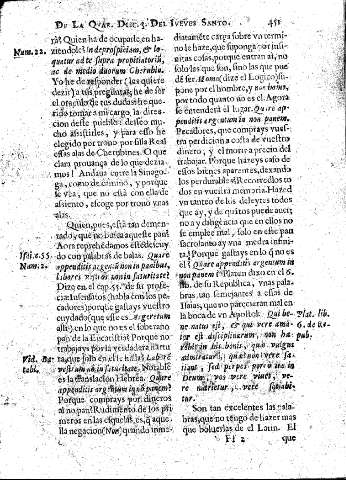 DE LA QUAR. DISC. 5. DEL IVEVES SANTO. 451
Num. 22.
rà? Quien ha de ocuparle, en ha-
ziendolos in despositum, & lo-
quatur ad te supra propitiatorij,
ac de medio duorum Cherubin.
Yo he de responder (les quiere
dezir) a tus preguntas, he de ser
el oraculo de tus dudas: he que-
rido tomar a mi cargo, la direc-
cion
assistirles, y para esso he
elegido por trono por silla Real
essas alas de Cherubines. O que
clara prouança de lo que dezia-
mos! Andaua entre la Sinago-
ga, como de camino, y porque
se vea, que no està con ella de
assiento, escoge por trono vnas
alas.
Quien, pues, està tan demen-
tado, que no busca aqueste pan?
Aora reprehẽdamos este descuy-
do con palabras de
Isai. c. 55.
Num. 2.
Quare
appenditis argentum non in panibus,
laborem vestrum non in saturitate?
Dize en el cap. 55. de su pro-
fecia Isaias (habla con los pe-
cadores) porque gastays vuestro
cuydado (que esso es argentum
en lo que no es el soberano
pan de la Eucaristia? Porque no
trabajays por la verdadera hartu-
Vid. Ba-
tabl.
ra, que solo en el se halla? Labore
vestrum non in saturitate. Notable
es la translacion Hebrea. Quare
appenditis argentum in non panem?
Porque comprays por dineros
al no pan? Rudimento de los pri-
meros en las escuelas, es, que
la negacion (Non) quando inme-
diatamẽte carga sobre vn termi-
no le haze, que suponga por infi-
nitas cosas, porque entran aì, no
solo las que son, sino las que pue-
dẽ ser. Homo (dize el Logico) su-
pone por el hombre, y non homo,
por todo quanto no es el. Agora
se entenderà el lugar. Quare ap-
penditis argentum in non panem.
Pecadores, que comprays vues-
tra perdicion a costa de vuestro
dinero, y el morir a precio del
trabajar. Porque hazeys caso de
essos bienes aparentes, dexando
los perdurables? Recorred los to-
dos en vuestra memoria. Hazed
vn tanteo de los deleytes todos
que ay, y de quitos puede auer:
no ay diligencia que en ellos no
se emplee mal, solo en este pan
sacrosanto ay vna medra infini-
ta? Porque gastays en lo que no
es el? Quare appenditis argentum in
non panem? Platon dixo en el 6.
lib. de su Republica, vnas pala-
bras, tan semejantes a essas de
Isaias, que no parecieran mal en
la boca de vn Apostol.
Plat. lib.
6. de Re-
pub.
Qui be-
ne natus est, & qui vere ama-
tor est disciplinarum, non ha-
rebit in his bonis, quæ vulgus
admiratur, quæ
sed perpes porro ita in
Deum, vos vere viuet, ve-
re nutrietur, vere satiabi-
tur.
Son tan excelentes las pala-
bras, que no tengo de hazer mas
que boluerlas de el Latin. El
Ff 2 que